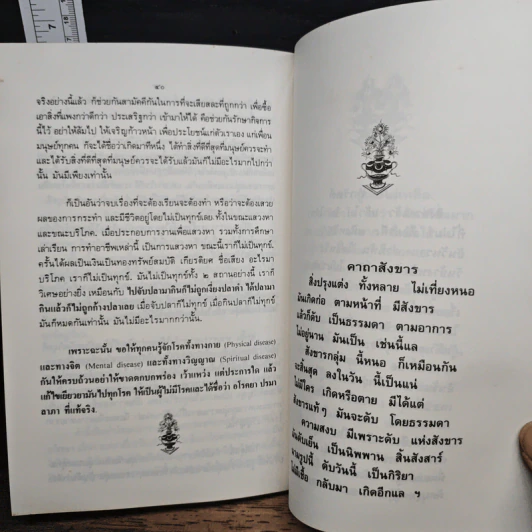 ๔๐
จริงอย่างนี้แล้ว ก็ช่วยกันสามัคคีกันในการที่จะเสียสละที่ถูกกว่า เพื่อซื้อ
เอาสิ่งที่แพงกว่าดีกว่า ประเสริฐกว่า เข้ามาให้ได้ คือช่วยกันรักษากิจการ
นี้ไว้ อย่าให้ล้มไป ให้เจริญก้าวหน้า เพื่อประโยชน์แก่ตัวเราเอง แก่เพื่อน
มนุษย์ทุกคน ก็จะได้ชื่อว่าเกิดมาทีหนึ่ง ได้ทำสิ่งที่ดีที่สุดที่มนุษย์ควรจะทำ
และได้รับสิ่งที่ดีที่สุดที่มนุษย์ควรจะได้รับแล้วมันก็ไม่มีอะไรมากไปกว่า
นั้น มันมีเพียงเท่านั้น
ก็เป็นอันว่าจบเรื่องที่จะต้องเรียนจะต้องทำ หรือว่าจะต้องเสวย
ผลของการกระทำ และมีชีวิตอยู่โดยไม่เป็นทุกข์เลย ทั้งในขณะแสวงหา
และขณะบริโภค. เมื่อประกอบการงานเพื่อแสวงหา รวมทั้งการศึกษา
เล่าเรียน การทำอาชีพเหล่านี้ เป็นการแสวงหา ขณะนี้เราก็ไม่เป็นทุกข์.
ครั้นได้ผลเป็นเงินเป็นทองทรัพย์สมบัติ เกียรติยศ ชื่อเสียง อะไรมา
บริโภค เราก็ไม่เป็นทุกข์. มันไม่เป็นทุกข์ทั้ง ๒ สถานอย่างนี้ เราก็
วิเศษอย่างยิ่ง เหมือนกับ ไปจับปลามากินก็ไม่ถูกเงี่ยงปลาตำ ได้ปลามา
กินแล้วก็ไม่ถูกก้างปลาเลย เมื่อจับปลาก็ไม่ทุกข์ เมื่อกินปลาก็ไม่ทุกข์
มันก็หมดกันเท่านั้น มันไม่มีอะไรมากกว่านั้น.
เพราะฉะนั้น ขอให้ทุกคนรู้จักโรคทั้งทางกาย (Physical disease)
และทางจิต (Mental disease) และทั้งทางวิญญาณ (Spiritual disease)
กันให้ครบถ้วนอย่าให้ขาดตกบกพร่อง เว้าแหว่ง แต่ประการใด แล้ว
แก้ไขเยียวยามันไปทุกโรค ให้เป็นผู้ไม่มีโรคและได้ชื่อว่า อโรคยา ปรมา
ลาภา ที่แท้จริง.
คาถาสังขาร
สิ่งปรุงแต่ง ทั้งหลาย ไม่เที่ยงหนอ
มันเกิดก่อ ตามหน้าที่ มีสังขาร
แล้วก็ดับ เป็นธรรมดา ตามอาการ
ไม่อยู่นาน มันเป็น เช่นนี้แล
สังขารกลุ่ม นี้หนอ ก็เหมือนกัน
จะสิ้นสุด ลงในวัน นี้เป็นแน่
ไม่มีใคร เกิดหรือตาย มีได้แต่
สังขารแท้ๆ มันจะดับ โดยธรรมดา
ความสงบ มีเพราะดับ แห่งสังขาร
ดับเย็น เป็นนิพพาน สิ้นสังสาร์
นามรูปนี้ ดับวันนี้ เป็นกิริยา
ไม่มีเชื้อ กลับมา เกิดอีกแล ฯ